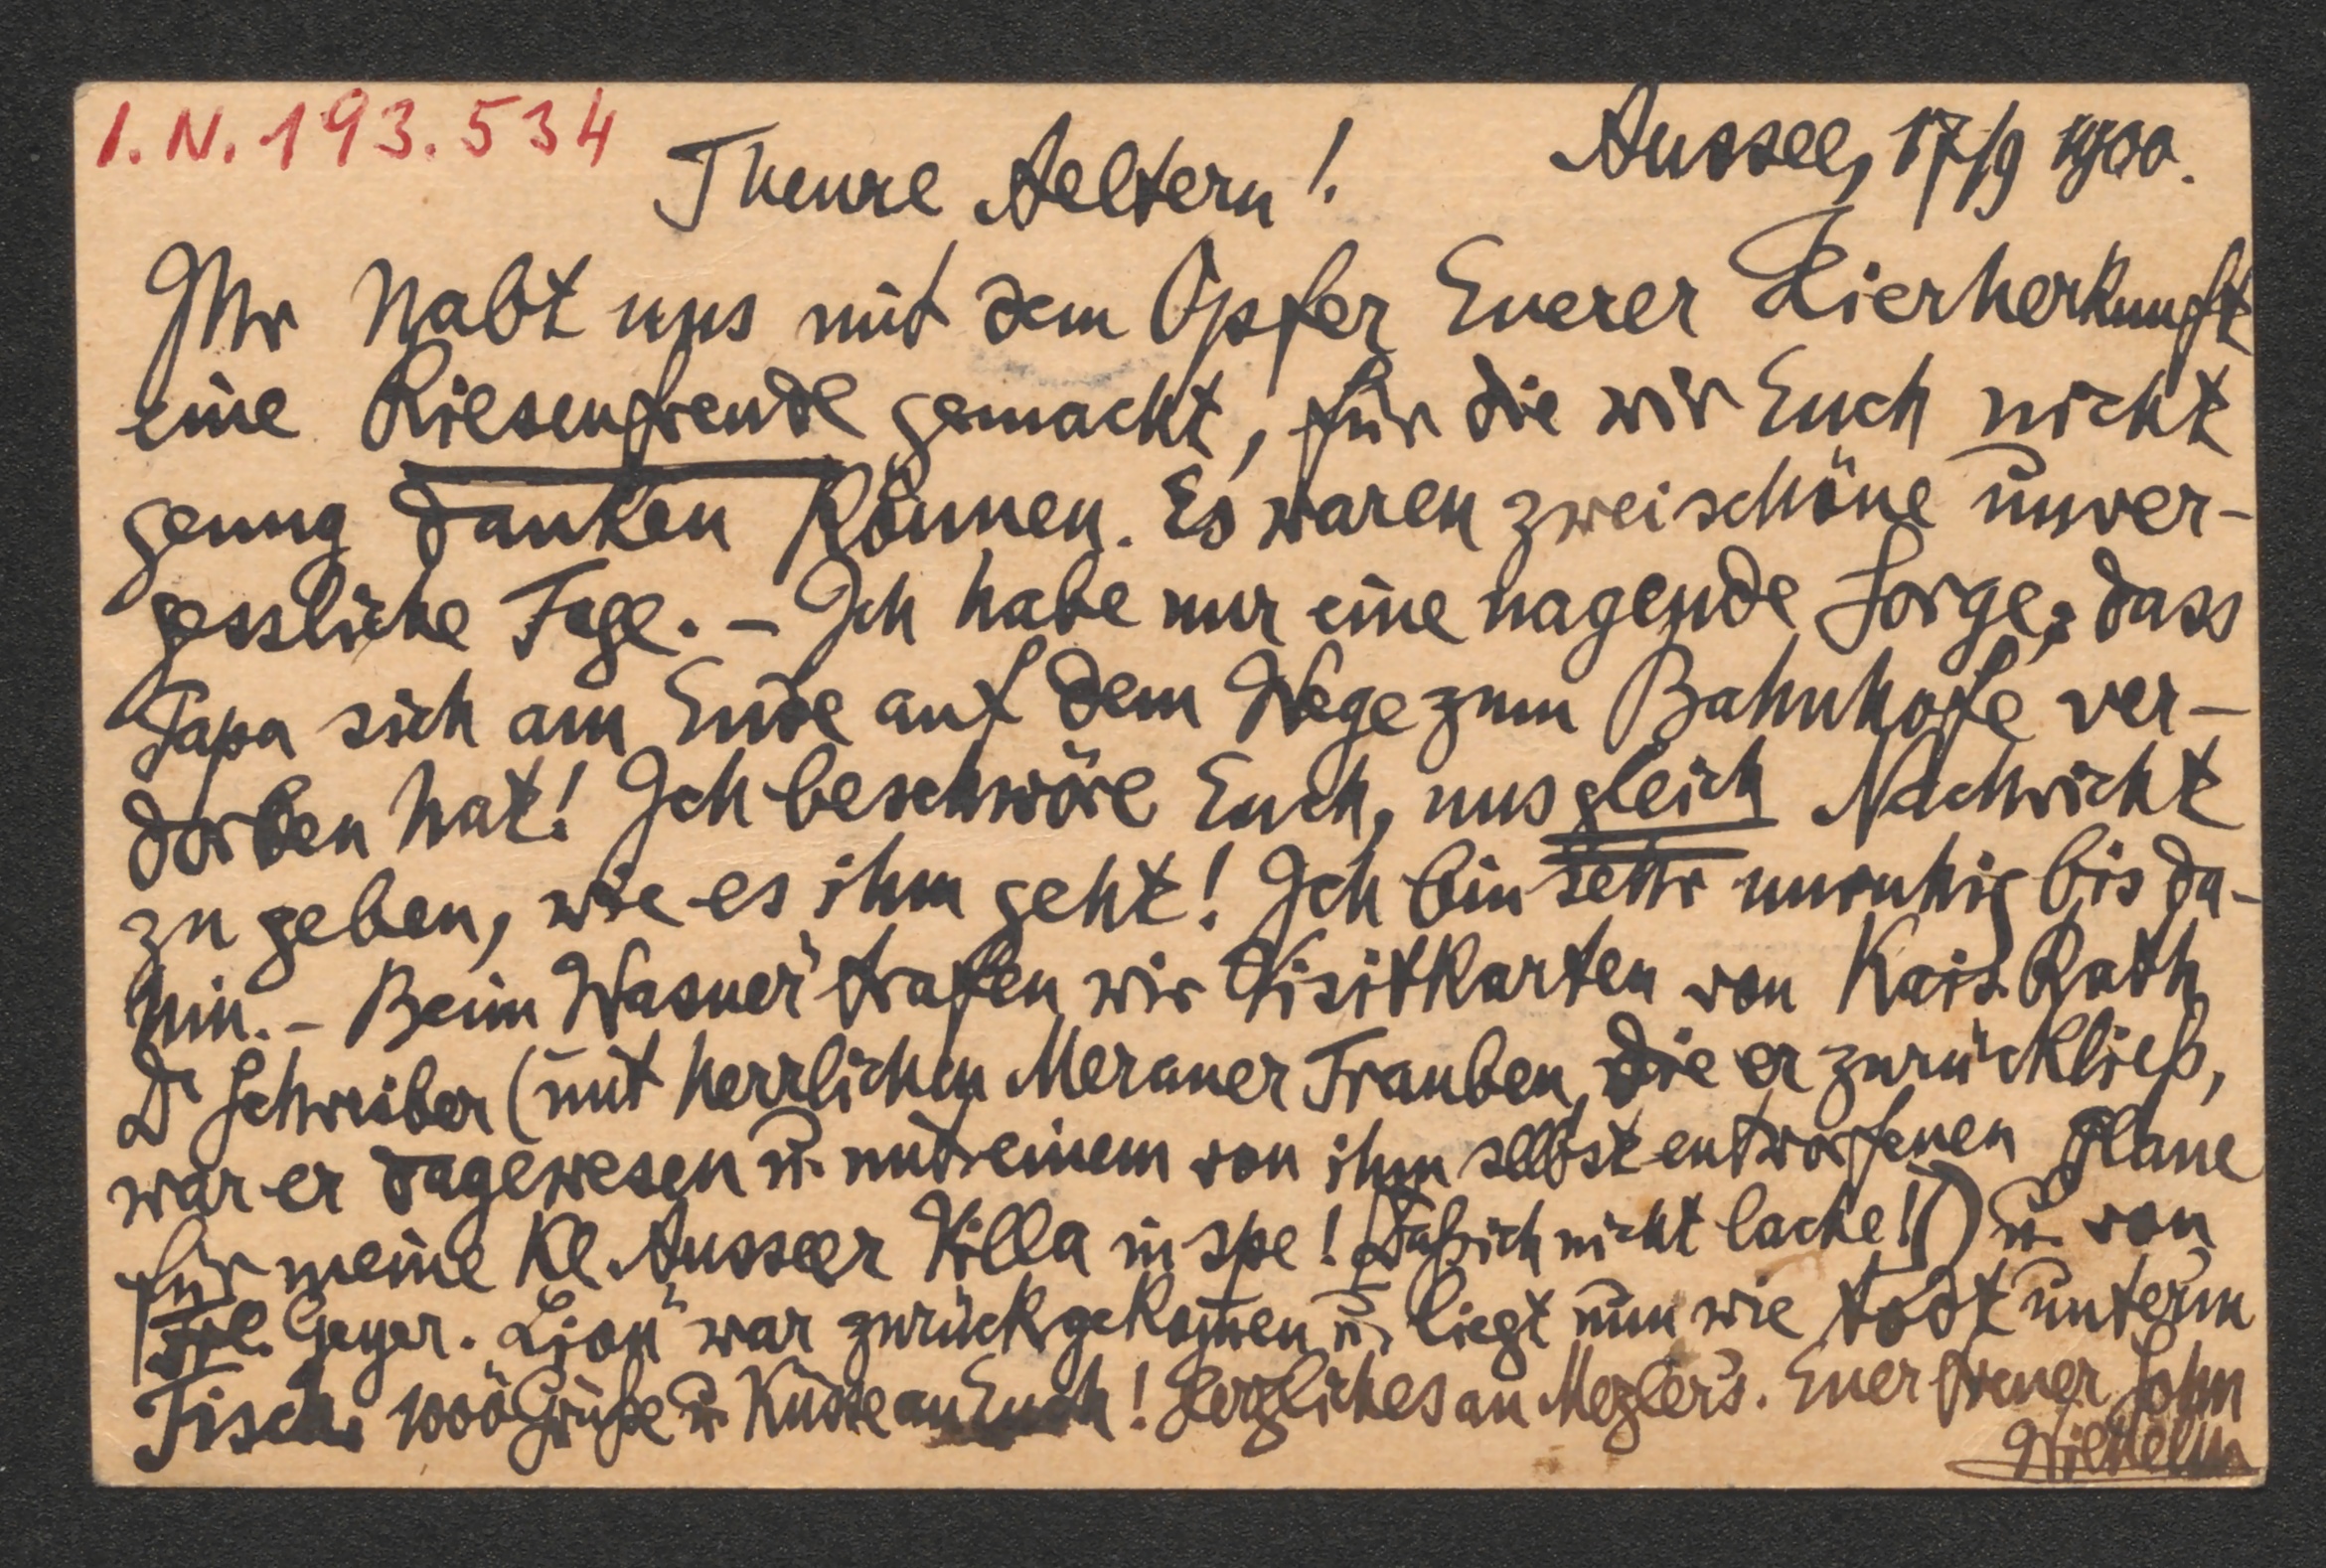 I.N. 193.534
Aussee, 17/9 1900.
Theure Aeltern!
Ihr habt uns mit dem Opfer Euerer Hierherkunft
eine Riesenfreude gemacht, für die wir Euch nicht
genug danken können. Es waren zwei schöne unver-
gessliche Tage. – Ich habe nur eine nagende Sorge, dass
Papa sich am Ende auf dem Wege zum Bahnhofe ver-
dorben hat! Ich beschwöre Euch, uns gleich Nachricht
zu geben, wie es ihm geht! Ich bin sehr unruhig bis da-
hin. – Beim „Wasner" trafen wir Visitkarten von Kais. Rath
Dr Schreiber (mit herrlichen Meraner Trauben, die er zurückließ,
war er dagewesen u. mit einem von ihm selbst entworfenen Plane
für meine kl. Ausseer Villa in spe! (Daß ich nicht lache!)) u. von
Frl. Geyer. „Lion" war zurückgekommen u. liegt nun wie todt unterm
Tisch. 1000 Grüße u. Küsse an Euch! Herzliches an Mezler's. Euer treuer Sohn
Wilhelm